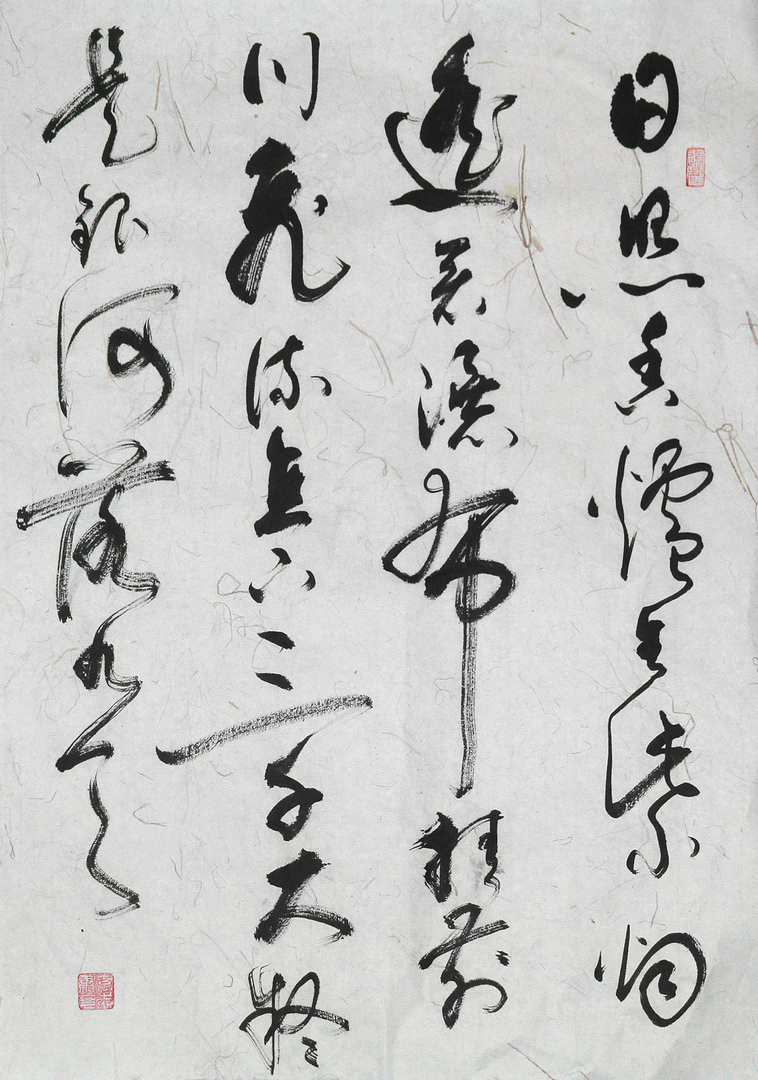 日照香爐生紫烟
遥看瀑布挂前
川飛流直下三千尺疑
是銀河落九天